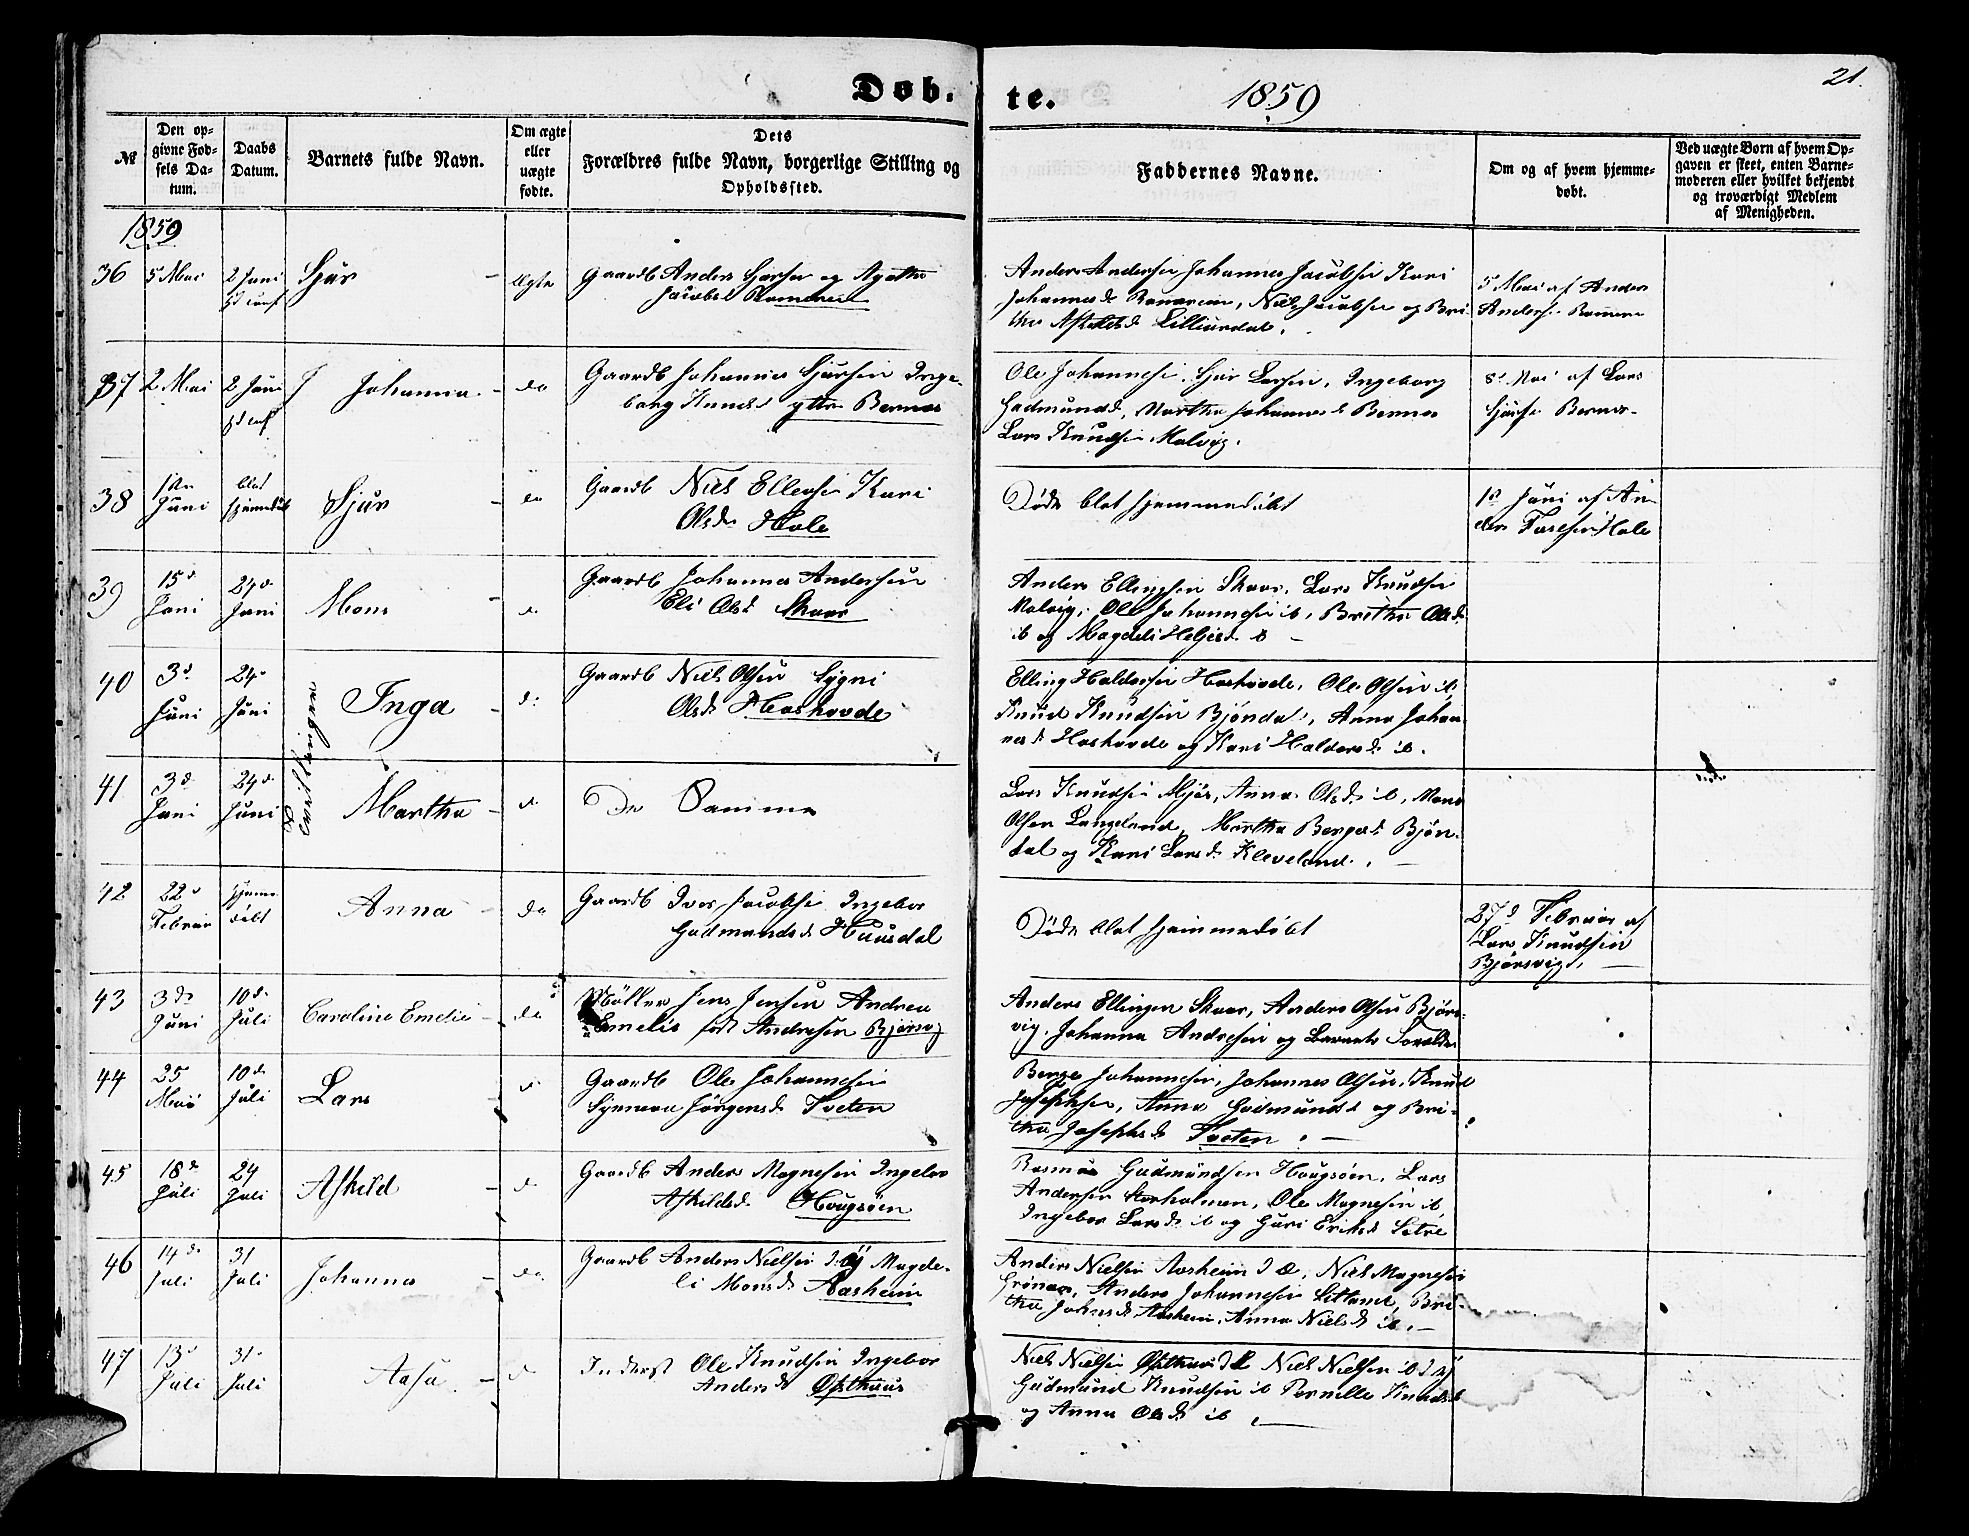 Døb-te. 1859 21.
№
Den opgivne Fødsels Datum.
Daabs Datum.
Barnets fulde Navn.
Om ægte eller uægte fødte.
Dets Forældres fulde Navn, borgerlige Stilling og Opholdssted.
Faddernes Navne.
Om og af hvem hjemmedøbt.
Ved uægte Børn af hvem Opgaven er skeet, enten Barnemoderen eller hvilket bekjendt og troværdigt Medlem af Menigheden.
1859
36 5 Mai 2 Juni Sjur Ægte Gaardb Anders og Agatha
Jacobsd
Anders Andersen Johannes Jacobsen Kari
Johannesd, Niels Jacobsen og Bri-
tha
5 Mai af Anders
Andersen
37 2 Mai 2 Juni Johanna do Gaardb Johannes Sjursen Inge-
borg Knudsd yttre Bernes
Ole Johannesen, Sjur Larsen, Ingeborg
Gudmundsd, Martha Johannesd Bernes
Lars Knudsen Malvig.
8 Mai af Lars
Sjurs. Bernes
38 1ste Juni blot hjemmedøbt Sjur do Gaardb Niels Ellensen Kari
Olsdr Hole
Døde blot hjemmedøbt
1d Juni af An-
ders Hole
39 15d Juni 24d Juni Mons d Gaardb Johannes Andersen
Eli Olsd Skaar
Anders Ellingsen Skaar, Lars Knudsen
Malvig, Ole Johannesen ib, Britha Olsd
ib og Magdeli ib
40 3d Juni 24d Juni Inga do Gaardb Niels Olsen Sygni
Olsdr Hoshovde
Elling Haldorsen Hoshovde, Ole Olsen ib,
Knud Knudsen Bjöndal, Anna Johan-
nesd Hoshovde og Kari Haldorsdr ib.
Tvillinger
41 3d Juni 24d Juni Martha d De Samme
Lars Knudsen Mjös, Anna Olsdr ib, Mons
Olsen Langeland, Martha Bergesd Bjön-
dal og Kari Larsdr Kleveland.
42 22d Februar hjemmedøbt Anna do Gaardb Iver Jacobsen Ingebor
Gudmundsd Huusdal
Døde blot hjemmedøbt
27d Februar af
Lars Knudsen
Bjørsvig.
43 3d Juni 10d Juli Caroline Emelie do Møller Jens Jensen Andrea
Emelie født Andresen Bjørsvig
Anders Ellingen Skaar, Anders Olsen Bjørs-
vig, Johanna Andresen og Barnets Forældre
44 25 Mai 10d Juli Lars d Gaardb Ole Johannesen
Synneva Jörgensdr Tveten
Berge Johannesen, Johannes Olsen, Knud
Josephsen, Anna Gudmundsd og Bri-
tha Josephsdr Tveten.
45 18d Juli 24 Juli Askild d Gaardb Anders Magnesen Ingebor
Askildsdr Hougsøen
Rasmus Gudmundsen Hougsøen, Lars
Andersen Storholmen, Ole Magnesen ib,
Ingebor Larsdr ib og Guri Eriksd Sætre
46 14d Juli 31 Juli Johanna do Gaardb Anders Nielsen d. y. Magde-
li Monsdr Aasheim
Anders Nielsen Aasheim d. Æ, Niels Magnesen
Grönaas, Anders Johannesen Litland, Bri-
tha Johnsd Aasheim, Anna Nielsd ib.
47 13d Juli 31 Juli Aasa d Inderst Ole Knudsen Ingebor
Andersdr Østhuus
Niels Nielsen Østhuus d Æ Niels Nielsen ib d y
Gudmund Knudsen ib Pernille Knudsd
og Anna Olsdr ib.